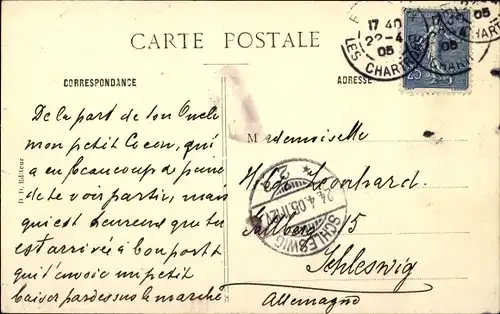 CARTE POSTALE
CORRESPONDANCE
ADRESSE
17 40
22-4
05
LES CHARTRONS
25
De la part de ton Oncle
mon petit Cocon, qui
a eu beaucoup de peine
de te voir partir, mais
qui est heureux que tu
est arrivée à bon port et
qui t'envoie un petit
baiser par dessus le marché
D. D. Editeur
Mademoiselle
Leonhard
15
Schleswig
Allemagne
SCHLESWIG
24.4.05